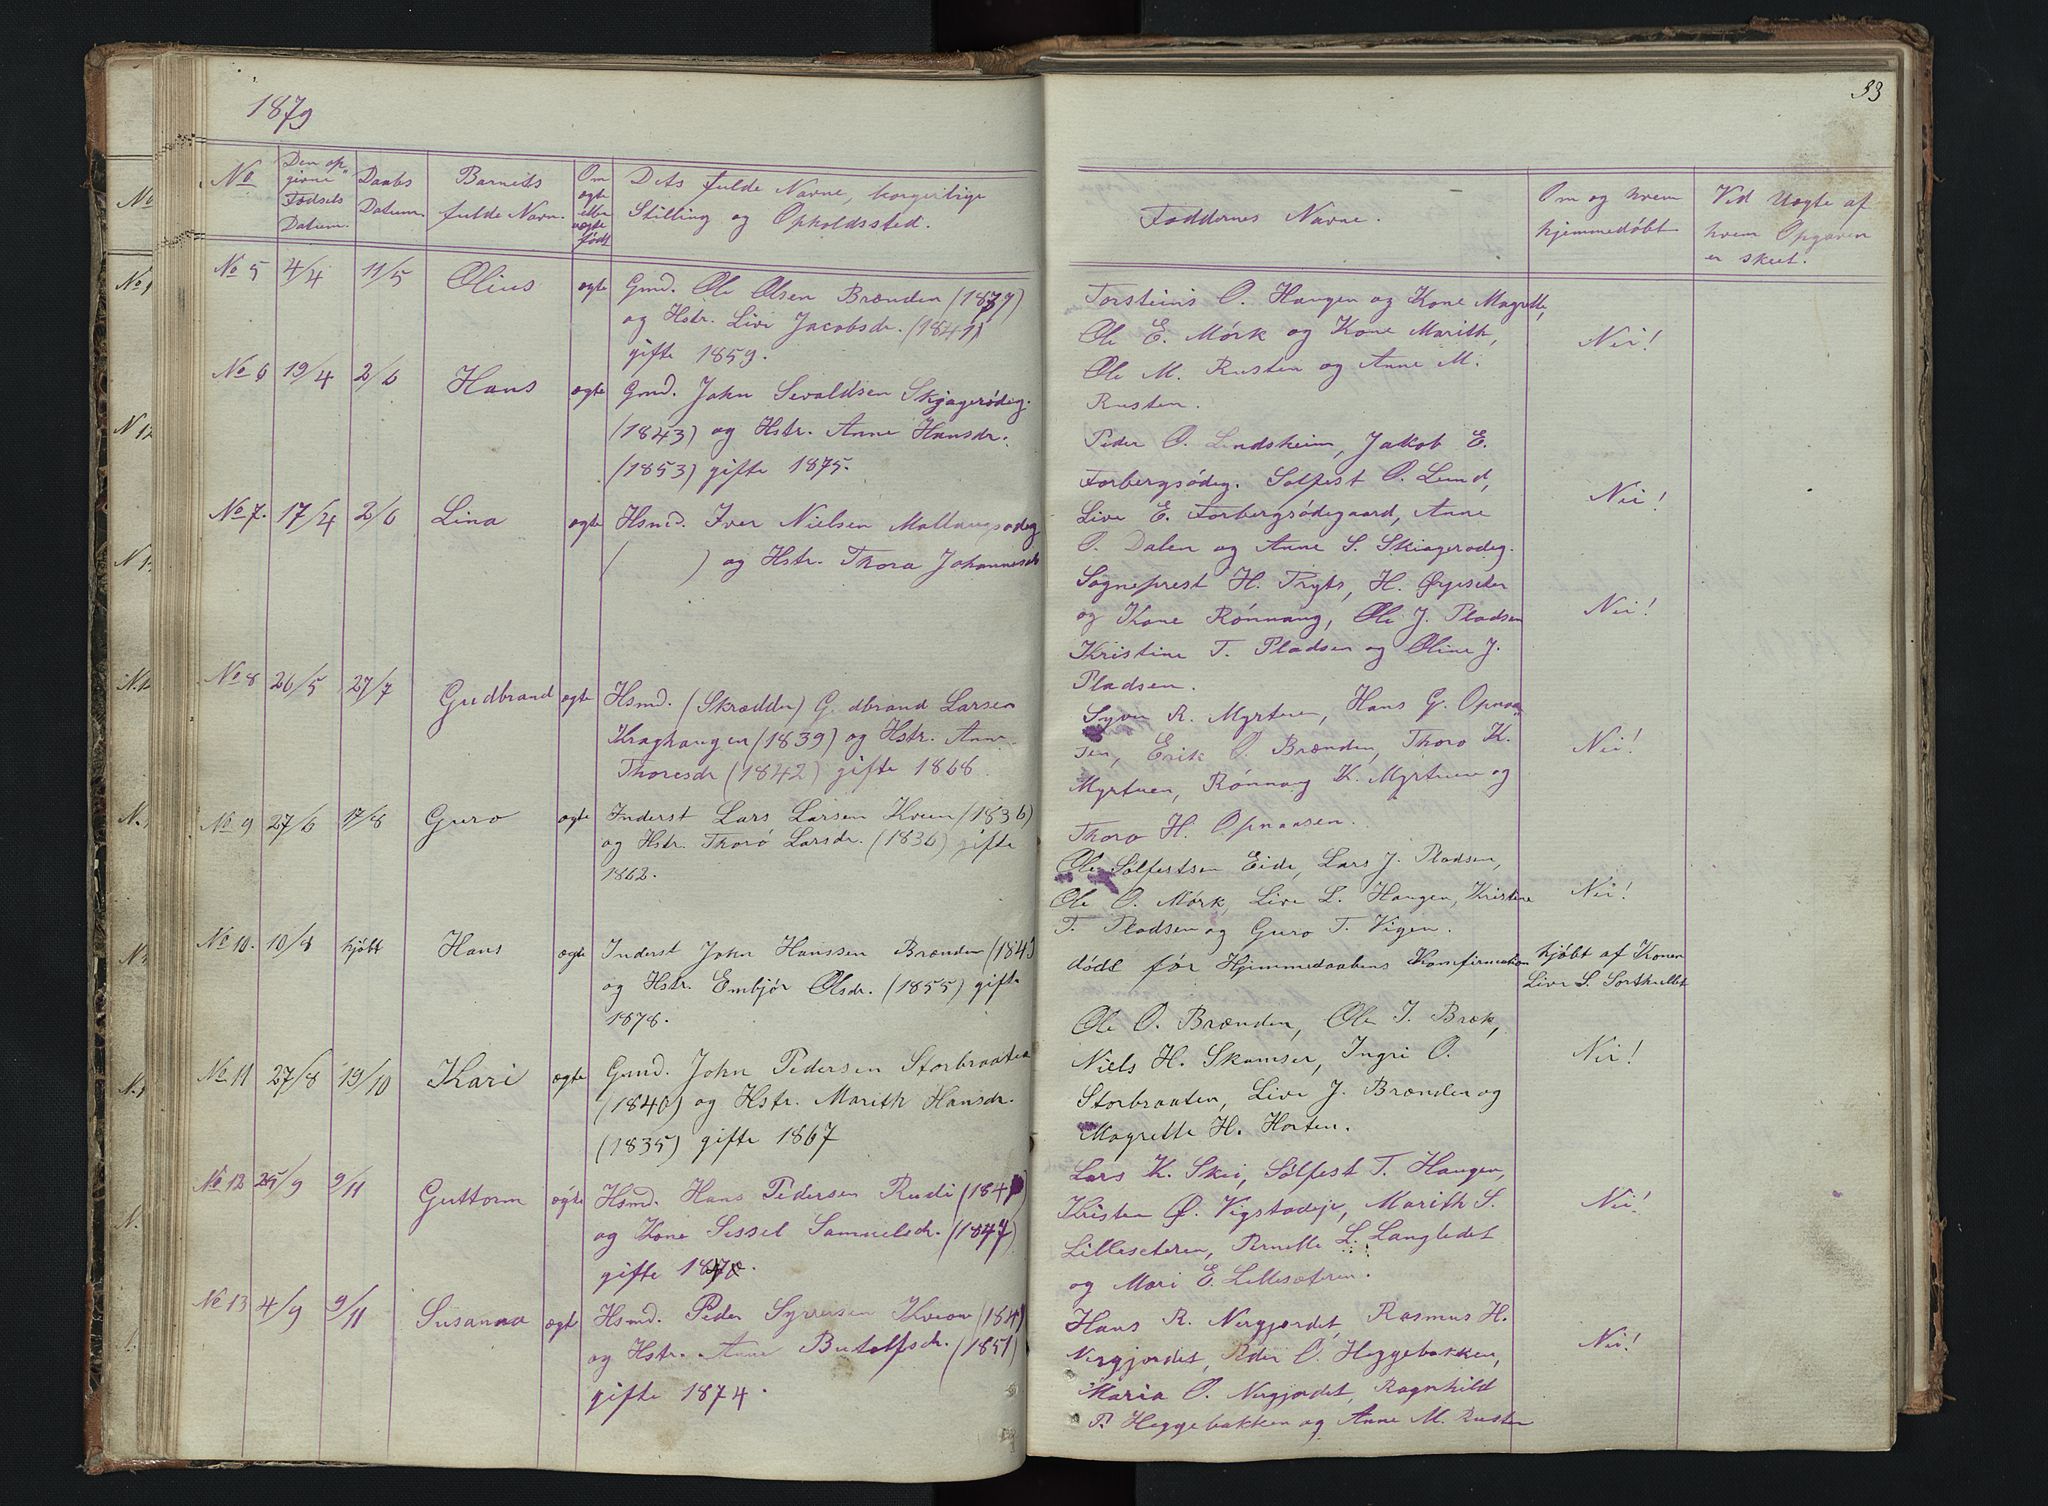 1879
No
Den op-
givne
Fødsels
Datum.
Daabs
Datum.
Barnets
fulde Navn.
Om
ægte
eller
uægte
født
Dets fulde Navne, borgerlige
Stilling og Opholdssted.
No 5 4/4 11/5 Olius ægte Gmd. Ole Olsen Brænden
og Hstr. Live Jacobsdr. (1841)
gifte 1859.
No 6 19/4 2/6 Hans ægte Gmd. John Sevaldsen Skjagerødeg.
(1843) og Hstr. Anne Hansdr.
(1853) gifte 1875.
No 7. 17/4 2/6 Lina ægte Hsmd. Iver Nielsen
( ) og Hstr. Thora Johannesdr
No 8 26/5 27/7 Gudbrand ægte Hsmd. (Skrædder) G. dbrand Larsen
Kraghaugen (1839) og Hstr. Anne
Thoresdr (1842) gifte 1868
No 9 27/6 17/8 Guro ægte Inderst Lars Larsen Kveen (1836)
og Hstr. Thorø Larsdr. (1836) gifte
1862.
No 10. 10/8 hjdøbt Hans ægte Inderst John Hanssen Brænden (1843
og Hstr. Embjør Olsdr. (1855) gifte
1878.
No 11 27/8 19/10 Kari ægte Gmd. John Pedersen Storbraaten
(1840) og Hstr. Marith Hansdr.
(1835) gifte 1867
No 12 25/9 9/11 Guttorm ægte Hsmd. Hans Pedersen Rudi
og Kone Sissel Samuelsdr. (1847)
gifte 1870.
No 13 4/9 9/11 Susanna ægte Hsmd. Peder Syversen Kveon (1841
og Hstr. Anne Butolfsdr. (1851)
gifte 1874.
33
Faddernes Navne.
Om og hvem
hjemmedøbt
Ved Uægte af
hvem Opgaven
er skeet.
Torsteins O. Haugen og Kone Magrette,
Ole E. Mørk og Kone Marith,
Nei!
Ole M. Rusten og Anne M.
Rusten.
Peder O. Lindsheim, Jakob E.
Forbergsødeg. Sølfest O. Lund,
Nei!
Live E. Forbergsødegaard, Anne
O. Dalen og Anne S. Skiagerødeg.
Sogneprest H. Pryts, H. Øyiseter
Nei!
og Kone Rønnaug, Ole J. Pladsen
Kristine T. Pladsen og Oline J.
Pladsen.
Syver R. Myrtuen, Hans G. Opnaa-
sen, Erik O. Brænden, Thoro K.
Nei!
Myrtuen, Rønnaug K. Myrtuen og
Thoro H. Opnaasen.
Ole Sølfestsen Eide, Lars J. Pladsen,
Ole O. Mørk, Live L. Haugen, Kristine
Nei!
T. Pladsen og Guro T. Vigen.
døde før Hjemmedaabens Komfirmation
hjdøbt af Konen
Live S. Sorthullet
Ole O. Brænden, Ole J. Bræk,
Niels H. Skamser, Ingri O.
Nei!
Storbraaten, Live J. Brænden og
Magrette H. Horten.
Lars K. Skei, Sølfest T. Haugen,
Kristen Ø. Vigstadeje, Marith S.
Nei!
Lillesæteren, Pernelle L. Langledet
og Mari E. Lillesæteren.
Hans R. Nergjordet, Rasmus H.
Nergjordet, Peder O. Heggebakken,
Nei!
Maria O. Nergjordet, Ragnhild
P. Heggebakken og Anne M. Rusten